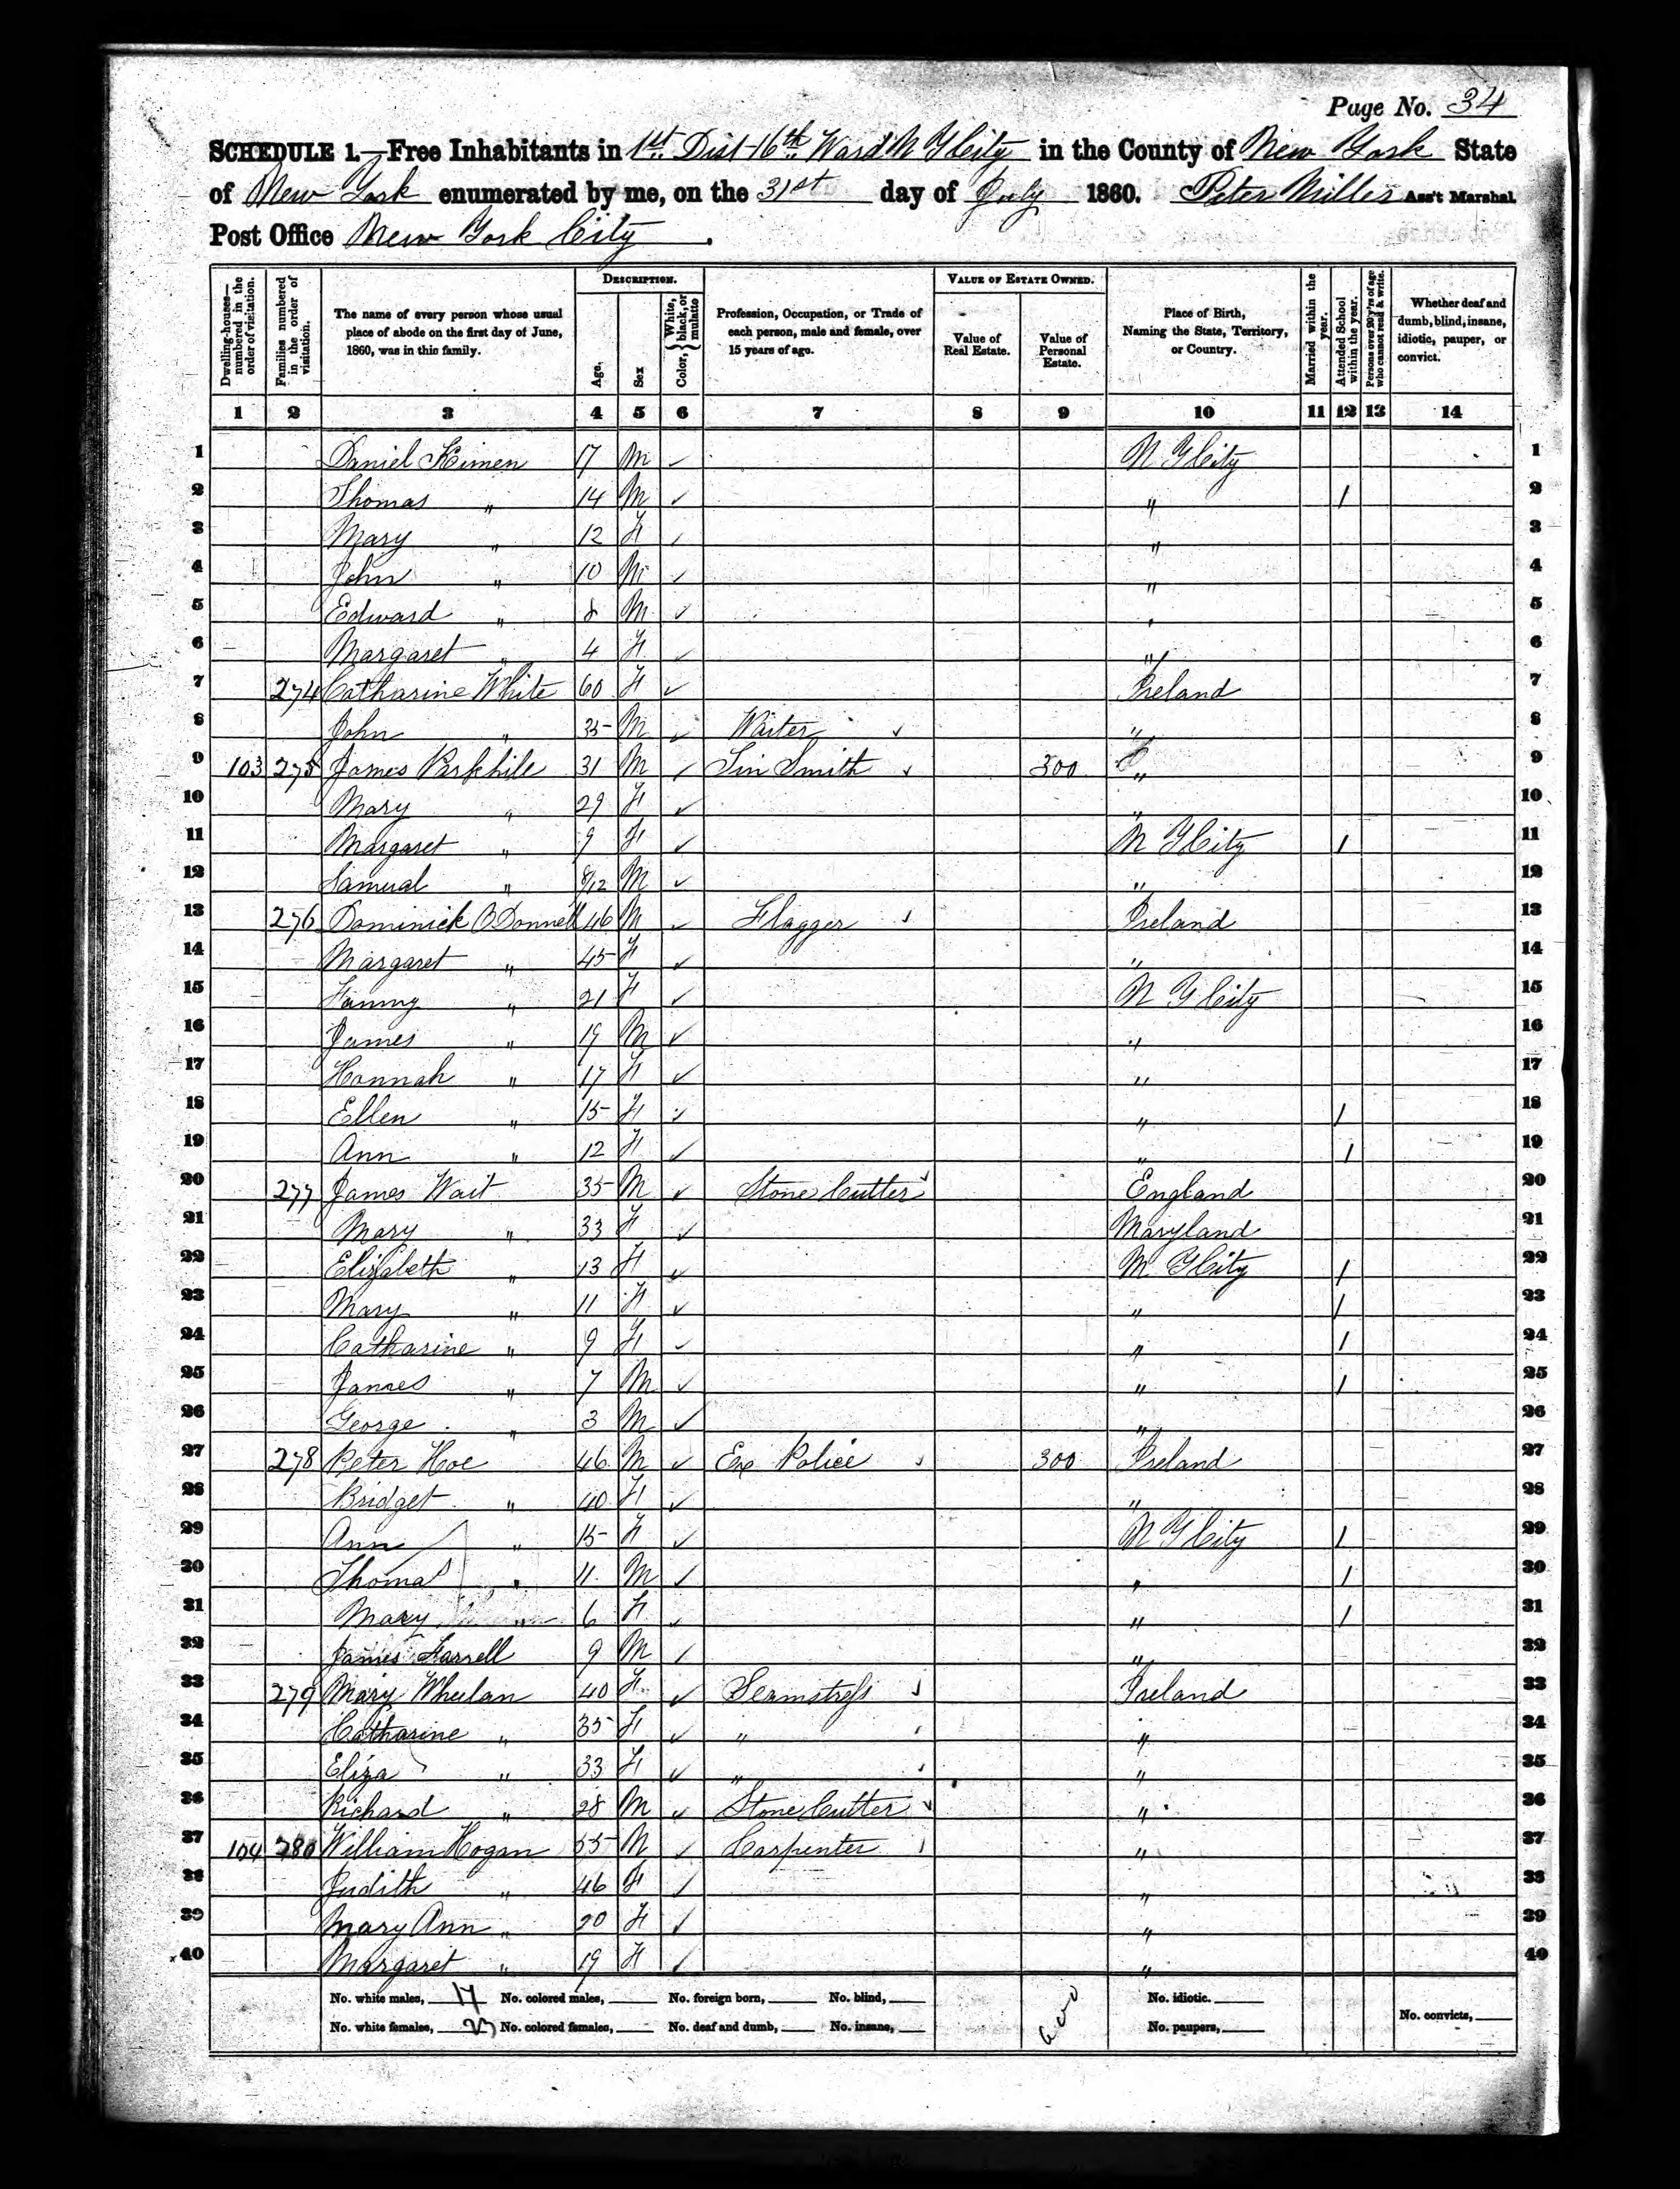 Page No. 34
SCHEDULE 1.—Free Inhabitants in 1st Dist 16th Ward N Y City in the County of New York State
of New York enumerated by me, on the 31st day of July 1860. Peter Miller Ass't Marshal.
Post Office New York City.
Dwelling-houses—numbered in the order of visitation.
Families numbered in the order of visitation.
The name of every person whose usual place of abode on the first day of June, 1860, was in this family.
DESCRIPTION.
Age.
Sex
Color, {White, black, or mulatto
Profession, Occupation, or Trade of each person, male and female, over 15 years of age.
VALUE OF ESTATE OWNED.
Value of Real Estate.
Value of Personal Estate.
Place of Birth, Naming the State, Territory, or Country.
Married within the year.
Attended School within the year.
Persons over 20 y'rs of age who cannot read & write.
Whether deaf and dumb, blind, insane, idiotic, pauper, or convict.
1 2 3 4 5 6 7 8 9 10 11 12 13 14
1 Daniel 17 M ✓ N Y City 1
2 Thomas " 14 M ✓ " / 2
3 Mary " 12 F ✓ " 3
4 John " 10 M ✓ " 4
5 Edward " 8 M ✓ " 5
6 Margaret " 4 F ✓ " 6
7 274 Catharine White 60 F ✓ Ireland 7
8 John " 35 M ✓ Waiter ✓ " 8
9 103 275 James Parkhile 31 M ✓ Tin Smith ✓ 300 " 9
10 Mary " 29 F ✓ " 10
11 Margaret " 9 F ✓ N Y City / 11
12 Samual " 8/12 M ✓ " 12
13 276 Dominick O Donnell 46 M ✓ Flagger ✓ Ireland 13
14 Margaret " 45 F ✓ " 14
15 Fanny " 21 F ✓ N Y City 15
16 James " 19 M ✓ " 16
17 Hannah " 17 F ✓ " 17
18 Ellen " 15 F ✓ " / 18
19 Ann " 12 F ✓ " / 19
20 277 James Wait 35 M ✓ Stone Cutter ✓ England 20
21 Mary " 33 F ✓ Maryland 21
22 Elizabeth " 13 F ✓ N Y City / 22
23 Mary " 11 F ✓ " / 23
24 Catharine " 9 F ✓ " / 24
25 James " 7 M ✓ " / 25
26 George " 3 M ✓ " 26
27 278 Peter Hoe 46 M ✓ Ex Police ✓ 300 Ireland 27
28 Bridget " 40 F ✓ " 28
29 Ann " 15 F ✓ N Y City / 29
30 Thomas " 11 M ✓ " / 30
31 Mary " 6 F ✓ " / 31
32 James Farrell 9 M ✓ " 32
33 279 Mary Wheelan 40 F ✓ Seamstress ✓ Ireland 33
34 Catharine " 35 F ✓ " ✓ " 34
35 Eliza " 33 F ✓ " ✓ " 35
36 Richard " 28 M ✓ Stone Cutter ✓ " 36
37 104 280 William Hogan 55 M ✓ Carpenter ✓ " 37
38 Judith " 46 F ✓ " 38
39 Mary Ann " 20 F ✓ " 39
40 Margaret " 19 F ✓ " 40
No. white males, 17 No. colored males, No. foreign born, No. blind, 600 No. idiotic. No. convicts,
No. white females, 23 No. colored females, No. deaf and dumb, No. insane, No. paupers,